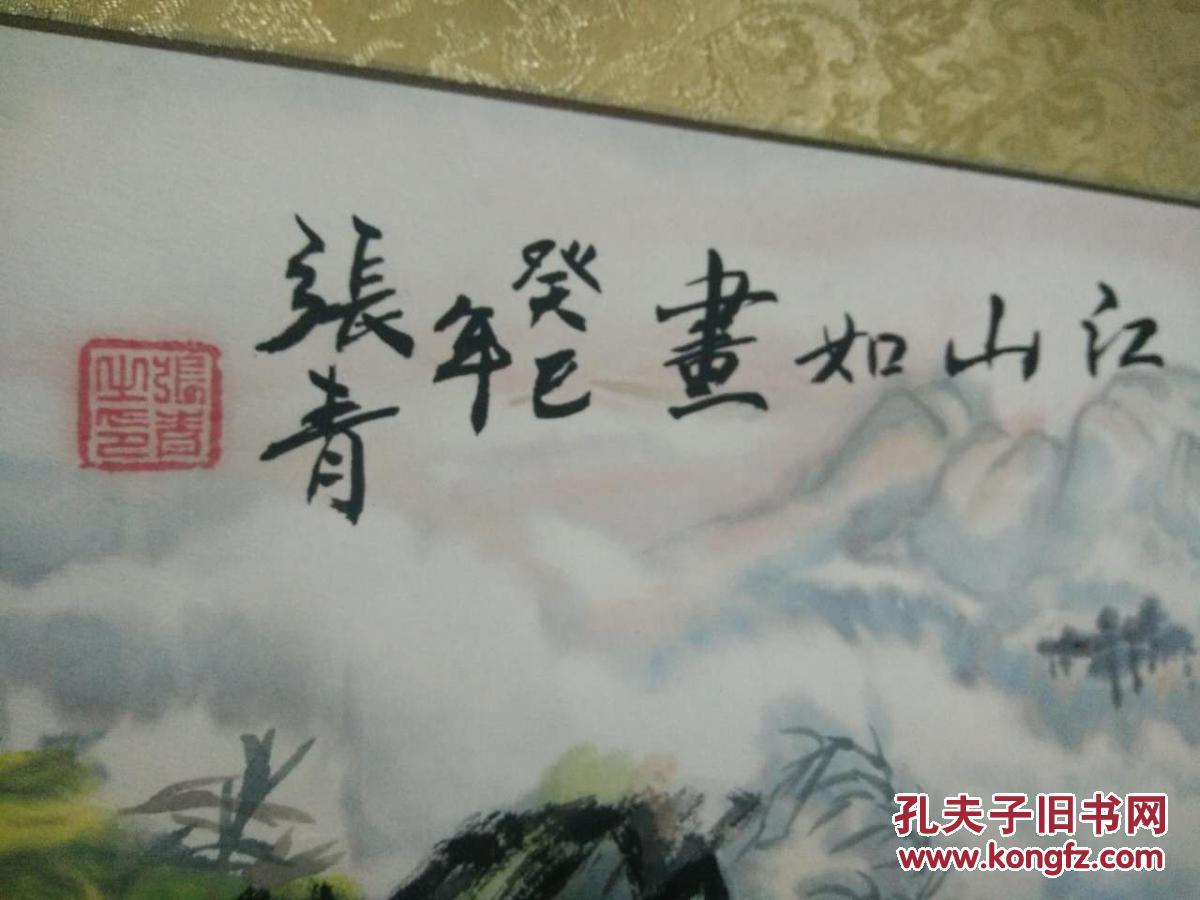 江山如畫
癸巳
年
張青
張青之印
孔夫子旧书网
www.kongfz.com